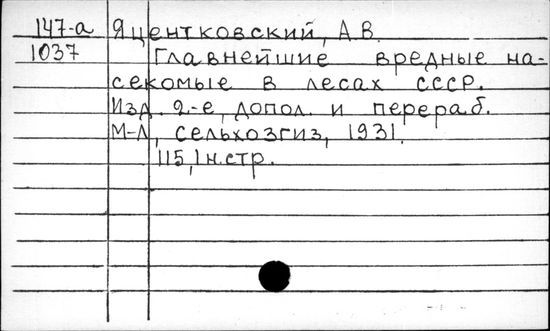 147-а Яцентковский, А.В.
1037 Главнейшие вредные на-
секомые в лесах СССР.
Изд. 2-е, допол. и перераб.
М-Л, Сельхозгиз, 1931.
115,1 н.стр.